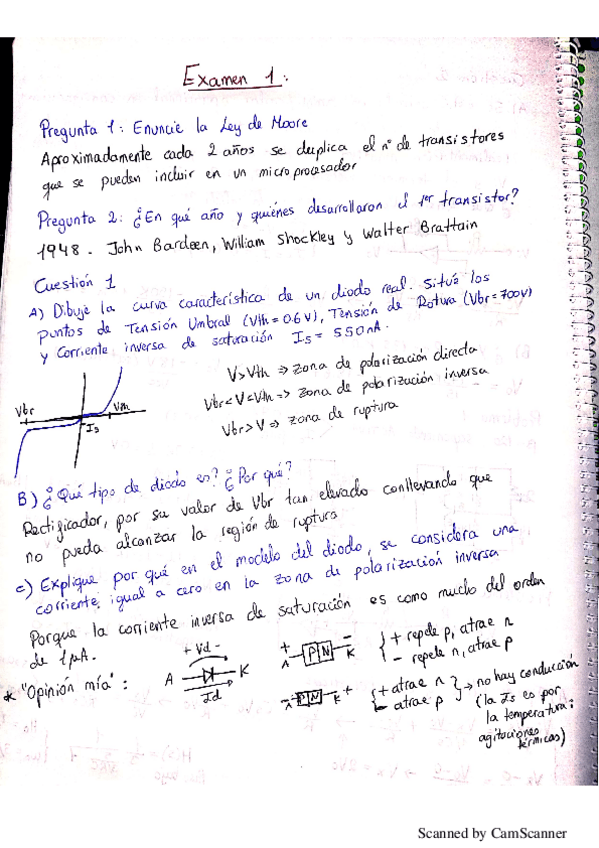 Examen 1:
Pregunta 1: Enuncie la Ley de Moore
Aproximadamente cada 2 años se duplica el nº de transistores
que se pueden incluir en un microprocesador
Pregunta 2: ¿En qué año y quiénes desarrollaron el 1er transistor?
1948. John Bardeen, William Shockley y Walter Brattain
Cuestión 1
A) Dibuje la curva característica de un diodo real. Sitúe los
puntos de Tensión Umbral (Vth = 0.6 V), Tensión de Rotura (Vbr = 700V)
y Corriente inversa de saturación Is = 550nA.
V > Vth ⇒ zona de polarización directa
Vbr < V < Vth ⇒ zona de polarización inversa
Vbr > V ⇒ zona de ruptura
Vbr
Vth
Is
B) ¿Qué tipo de diodo es? ¿Por qué?
Rectificador, por su valor de Vbr tan elevado conllevando que
no pueda alcanzar la región de ruptura
C) Explique por qué en el modelo del diodo, se considera una
corriente igual a cero en la zona de polarización inversa
Porque la corriente inversa de saturación es como mucho del orden
de 1μA.
* "Opinión mía":
+ Vd -
A K
Id
+ P N -
A K
{ + repele p, atrae n
- repele n, atrae p
- P N +
A K
{ + atrae n
- atrae p } → no hay conducción
(la Is es por
la temperatura:
agitaciones
térmicas)
Scanned by CamScanner